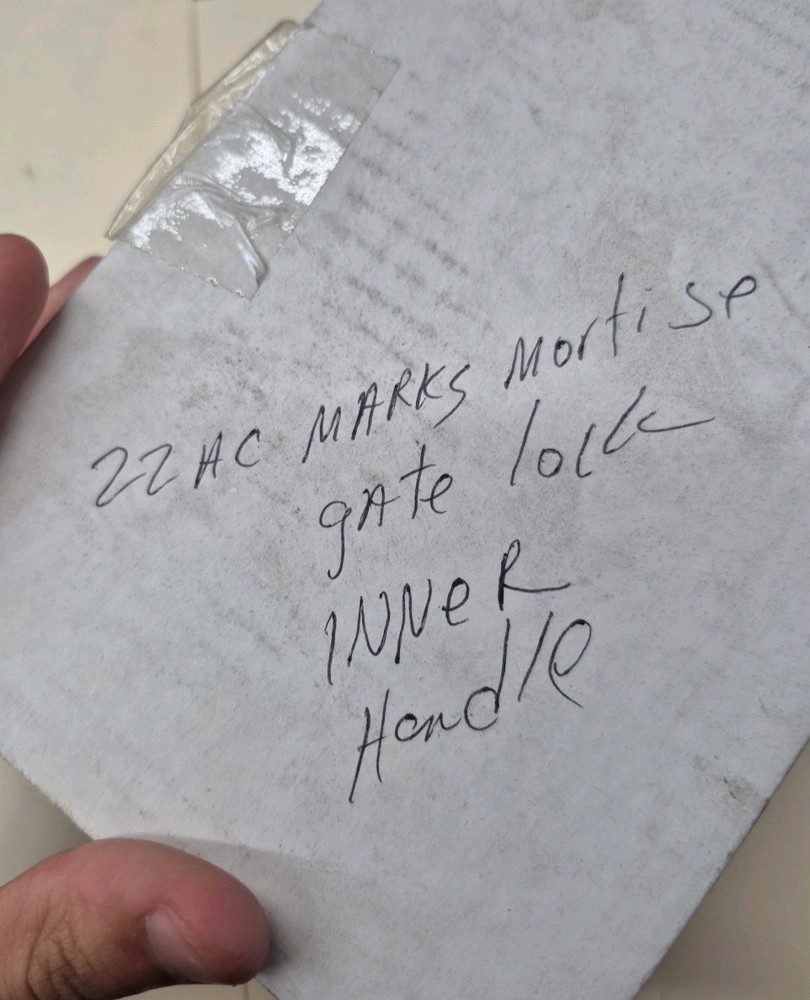 22AC MARKS Mortise
gAte lock
INNeR
Handle